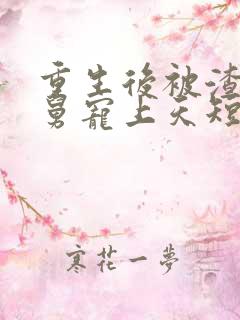 重生後被渣
舅寵上天短
寒花一夢